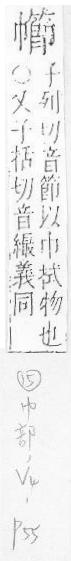 幯
子列切音節以巾拭物也
○又子括切音繓義同
⑮巾部,V4,
P55